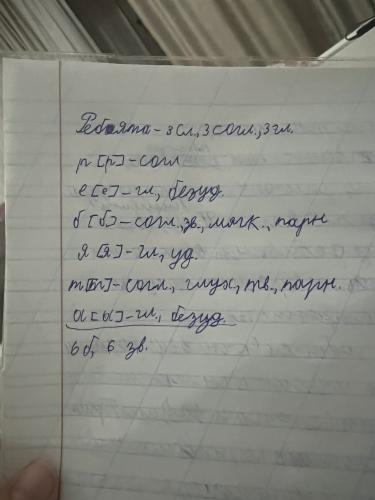 Ребята - 3 сл., 3 согл., 3 гл.
р [р] - согл
е [е] - гл, безуд.
б [б] - согл., зв., мягк., парн
я [я] - гл, уд.
т [т] - согл., глух, тв., парн.
а [а] - гл., безуд.
6 б, 6 зв.